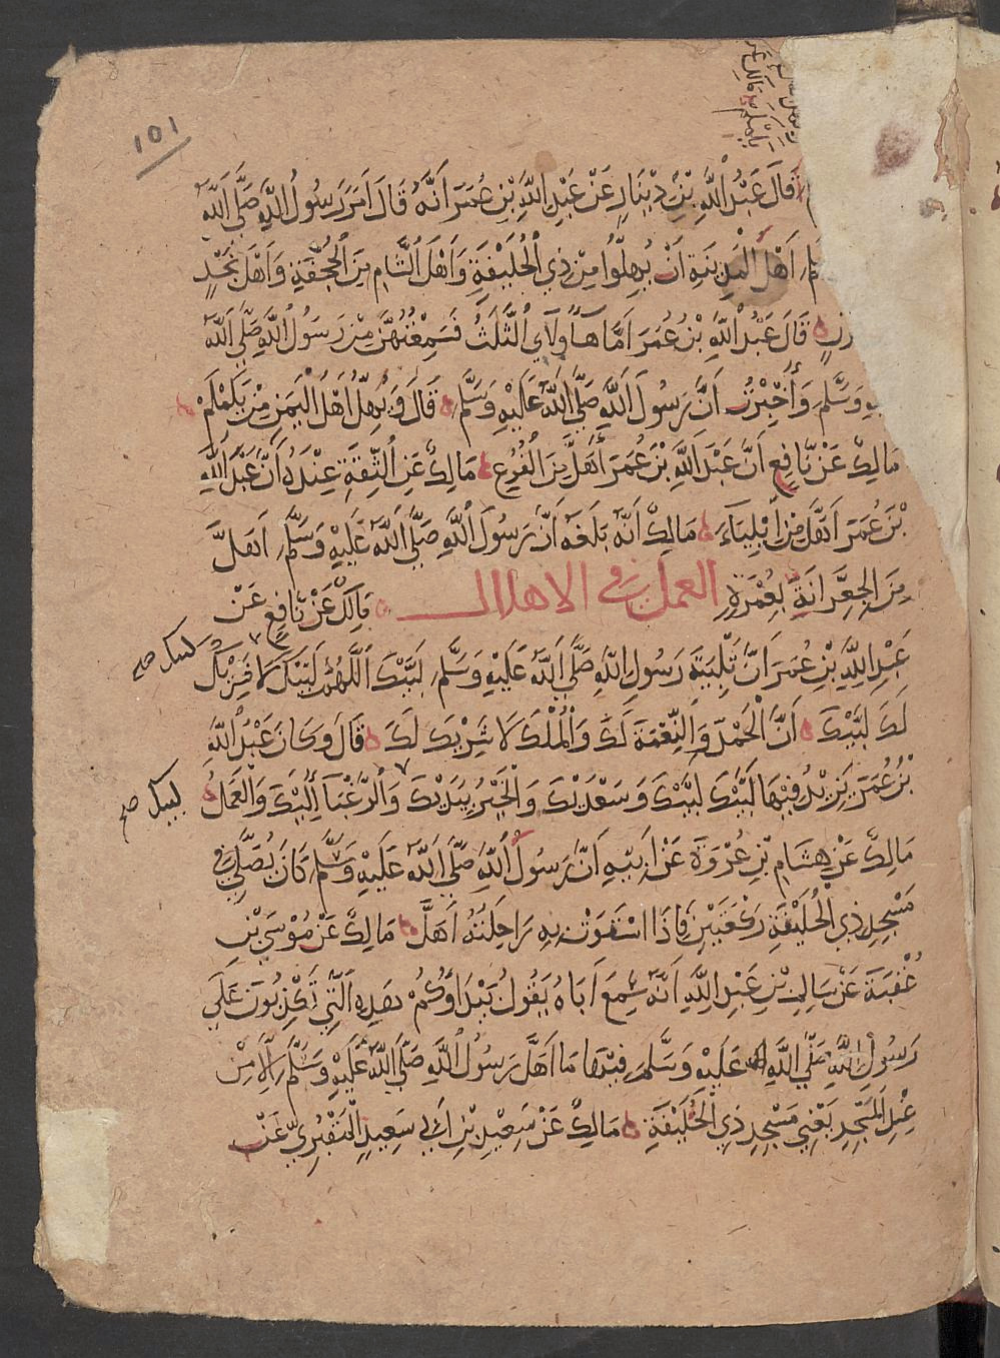 ١٥١
قَالَ عَبْدُ اللَّهِ بْنِ دِيْنَارٍ عَنْ عَبْدِ اللَّهِ بْنِ عُمَرَ اَنَّهُ قَالَ اَمَرَ رَسُولُ اللَّهِ صَلَّى اللَّهُ
اَهْلَ الْمَدِينَةِ اَنْ يُهِلُّوا مِنْ ذِي الْحُلَيْفَةِ وَاَهْلَ الشَّامِ مِنَ الْجُحْفَةِ وَاَهْلَ نَجْدٍ
قَالَ عَبْدُ اللَّهِ بْنُ عُمَرَ اَمَّا هَاؤُلَاءِ الثَّلَثُ فَسَمِعْتُهُنَّ مِنْ رَسُولِ اللَّهِ صَلَّى اللَّهُ
وَسَلَّمَ وَأُخْبِرْتُ اَنَّ رَسُولَ اللَّهِ صَلَّى اللَّهُ عَلَيْهِ وَسَلَّمَ قَالَ وَيُهِلُّ اَهْلُ الْيَمَنِ مِنْ يَلَمْلَمْ
مَالِكٌ عَنْ نَّافِعٍ اَنَّ عَبْدَ اللَّهِ بْنَ عُمَرَ أَهَلَّ مِنَ الْفُرْعِ مَالِكٌ عَنِ الثِّقَةِ عِنْدَهُ اَنَّ عَبْدَ اللَّهِ
بْنَ عُمَرَ اَهَلَّ مِنْ اِيْلِيَاءَ مَالِكٌ اَنَّهُ بَلَغَهُ اَنَّ رَسُولَ اللَّهِ صَلَّى اللَّهُ عَلَيْهِ وَسَلَّمَ اَهَلَّ
مِنَ الْجِعِرَّانَةِ بِعُمْرَةٍ العمل في الاهلال مَالِكٌ عَنْ نَافِعٍ عَنْ
عَبْدِ اللَّهِ بْنِ عُمَرَ اَنَّ تَلْبِيَةَ رَسُولِ اللَّهِ صَلَّى اللَّهُ عَلَيْهِ وَسَلَّمَ لَبَّيْكَ اَللَّهُمَّ لَبَّيْكَ لَا شَرِيْكَ
لبيك صح
لَكَ لَبَّيْكَ اَنَّ الْحَمْدَ وَالنِّعْمَةَ لَكَ وَالْمُلْكَ لَا شَرِيْكَ لَكَ قَالَ وَكَانَ عَبْدُ اللَّهِ
بْنُ عُمَرَ يَزِيْدُ فِيْهَا لَبَّيْكَ لَبَّيْكَ وَسَعْدَيْكَ وَالْخَيْرُ بِيَدَيْكَ وَالرَّغْبَآ اِلَيْكَ وَالْعَمَلُ
لبيك صح
مَالِكٌ عَنْ هِشَامِ بْنِ عُرْوَةَ عَنْ اَبِيْهِ اَنَّ رَسُولَ اللَّهِ صَلَّى اللَّهُ عَلَيْهِ وَسَلَّمَ كَانَ يُصَلِّي فِي
مَسْجِدِ ذِي الْحُلَيْفَةِ رَكْعَتَيْنِ فَاِذَا اسْتَوَتْ بِهِ رَاحِلَتُهُ اَهَلَّ مَالِكٌ عَنْ مُوْسَى بْنِ
عُقْبَةَ عَنْ سَالِمِ بْنِ عَبْدِ اللَّهِ اَنَّهُ سَمِعَ اَبَاهُ يَقُولُ بَيْدَاؤُكُمْ هَذِهِ الَّتِي تَكْذِبُوْنَ عَلَى
رَسُولِ اللَّهِ صَلَّى اللَّهُ عَلَيْهِ وَسَلَّمَ فِيْهَا مَا اَهَلَّ رَسُولُ اللَّهِ صَلَّى اللَّهُ عَلَيْهِ وَسَلَّمَ اِلَّا مِنْ
عِنْدِ الْمَسْجِدِ يَعْنِي مَسْجِدَ ذِي الْحُلَيْفَةِ مَالِكٌ عَنْ سَعِيْدِ بْنِ اَبِي سَعِيْدٍ الْمَقْبُرِيِّ عَنْ